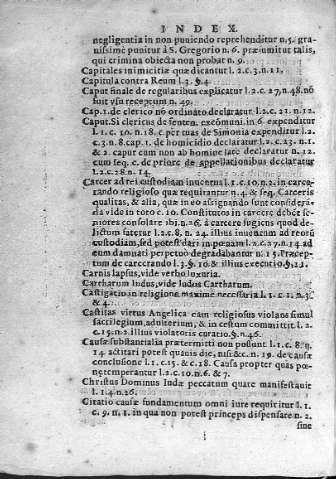 INDEX.
negligentia in non puniendo reprehenditur n.5. gra-
uissimè punitur à S. Gregorio n. 6. præsumitur talis,
qui crimina obiecta non probat n. 9.
Capitales inimicitiæ quæ dicantur l.2.c.3.n.11.
Capitula contra Reum l.3. §.4.
Caput finale de regularibus explicatur l.2.c.27.n.48.nō
fuit vsu receptum n. 49.
Cap. 1. de clerico nō ordinato declaratur l.2.c.21. n.12.
Caput. Si clericus de senten. excōmuni. in 6 expenditur
l. 1. c. 10. n. 18. c per tuas de Simonia expenditur l. 2.
c. 3. n 8. cap. 1. de homicidio declaratur l.2.c.23. n. 1.
& 2. caput cum non ab homine latè declaratur n. 12.
cum seq. c. de priore de appellationibus declaratur
l.2.c 28. n. 14.
Carcer ad rei custodiam inuentus l. 1. c. 10. n. 2. in carce-
rando religioso quæ requirantur n. 4. & seq. Carceris
qualitas, & alia, quæ in eo assignando sunt conside-
rāda vide in toto c. 10. Constitutos in carcere debēt se-
piores consolare ibi. n. 26. à carcere fugiens quod de-
lictum fatetur l. 2. c. 8. n. 24. illius inuentum ad reorū
custodiam, sed potest dari in pœnam l. 2. c. 27. n. 14. ad
eum damnati perpetuo degradabantur n. 15. Præcep-
tum de carcerando l. 3. §. 10. & illius executio §. 12.
Carnis lapsus, vide verbo luxuria.
Cartharum ludus, vide ludus Cartharum.
Castigatio in religione maximè necessaria l. 1. c. 1. n. 3.
& 4.
Castitas virtus Angelica eam religiosus violans simul
sacrilegium, adulterium, & incestum committit l. 2.
c. 15. n. 2. illius violatoris curatio §. n. 46.
Causæ substantialia prætermitti non possunt l. 1. c. 8. n.
14. actitari potest quauis die, nisi &c. n. 19. de causæ
conclusione l. 1. c. 15. & c. 18. Causa propter quas pœ-
næ temperantur l. 2. c. 10. n. 6. & 7.
Christus Dominus Iudæ peccatum quare manifestauit
l. 1. 4 n. 26.
Citatio causæ fundamentum omni iure requiritur l. 1.
c. 9. n. 1. in qua non potest princeps dispensare n. 2.
sine